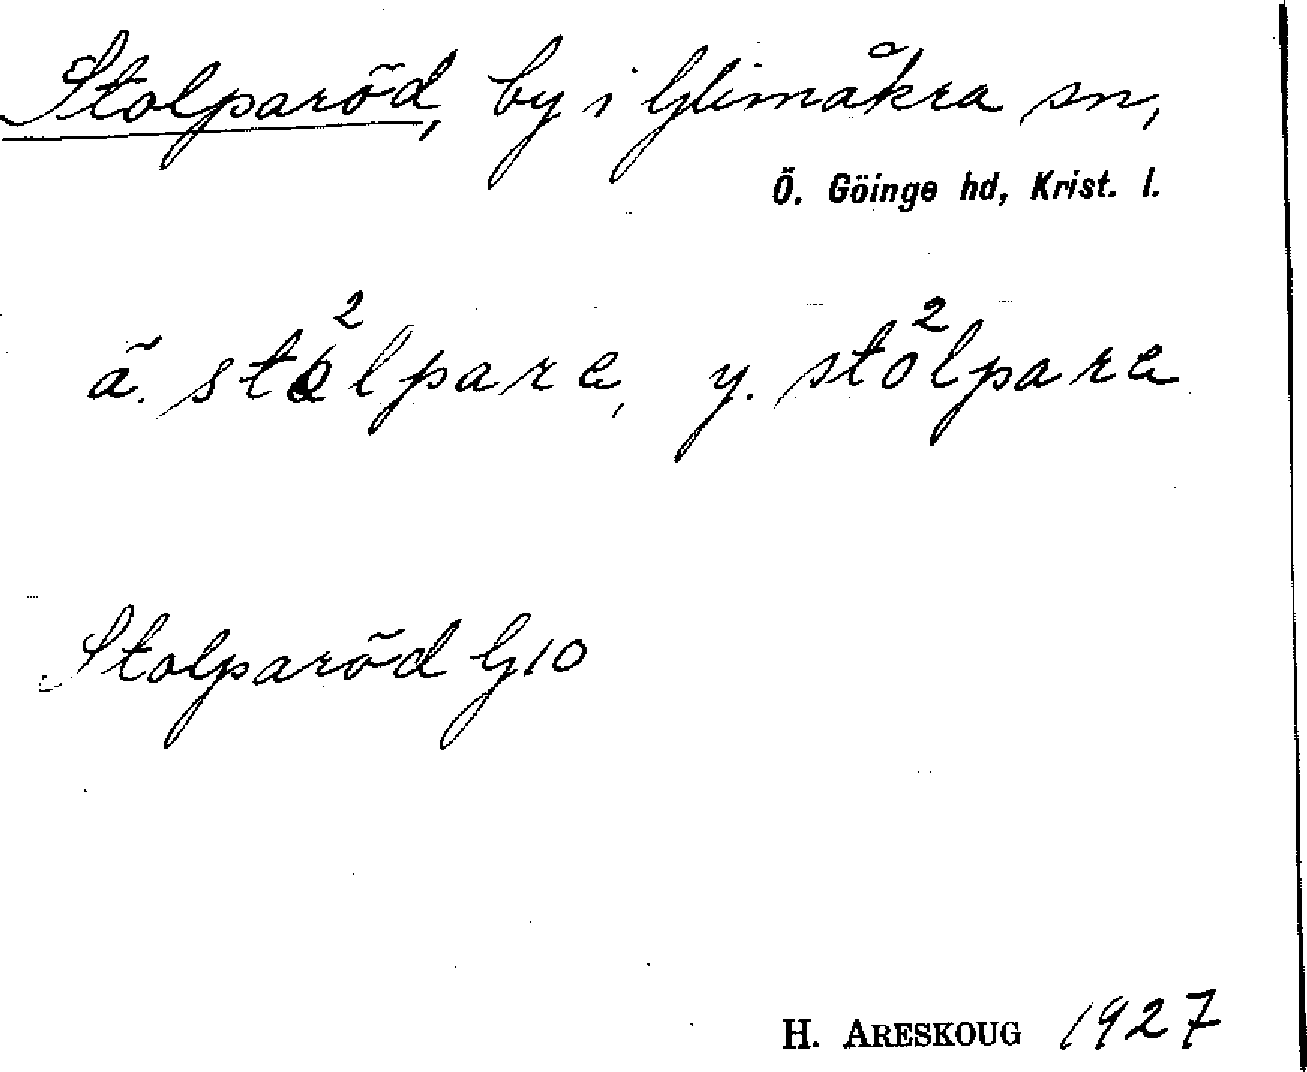 Stolparöd, by i Glimåkra sn,
Ö. Göinge hd, Krist. l.
ä. sto²lpara, y. sto²lpara
Stolparöd G10
H. ARESKOUG 1927